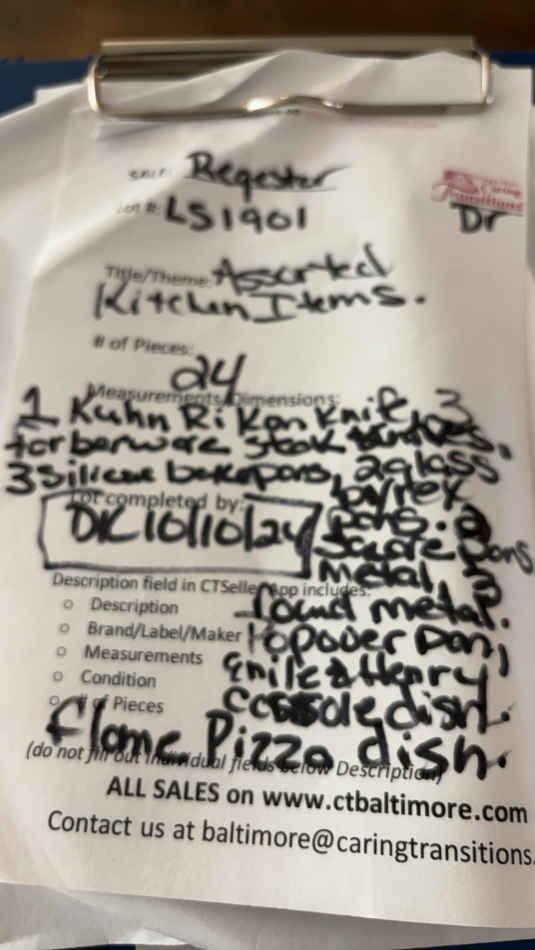 Regester
Lot #: LS1901
Caring
Transitions
Dr
Title/Theme: Assorted
Kitchen Items.
# of Pieces:
24
Measurements/Dimensions:
1 Kuhn Rikon Knife 3
forberware steak knives.
3 silicone bakepans, 2 glass
pyrex
Lot completed by:
DK 10/10/24
pans. 2
square pans
metal, 3
Description field in CTSeller App includes:
round metal.
○ Description
○ Brand/Label/Maker
1 popover pan,
○ Measurements
Emile & Henry
○ Condition
○ # of Pieces
dish.
Flame Pizza dish.
(do not fill out individual fields below Description)
ALL SALES on www.ctbaltimore.com
Contact us at baltimore@caringtransitions.